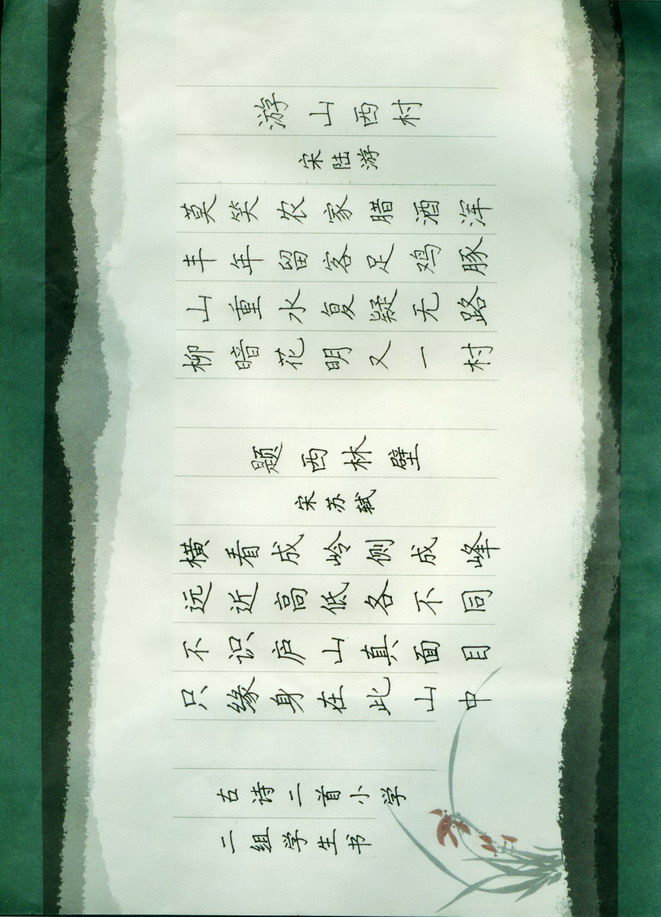 游山西村
宋陆游
莫笑农家腊酒浑
丰年留客足鸡豚
山重水复疑无路
柳暗花明又一村
题西林壁
宋苏轼
横看成岭侧成峰
远近高低各不同
不识庐山真面目
只缘身在此山中
古诗二首小学
二组学生书